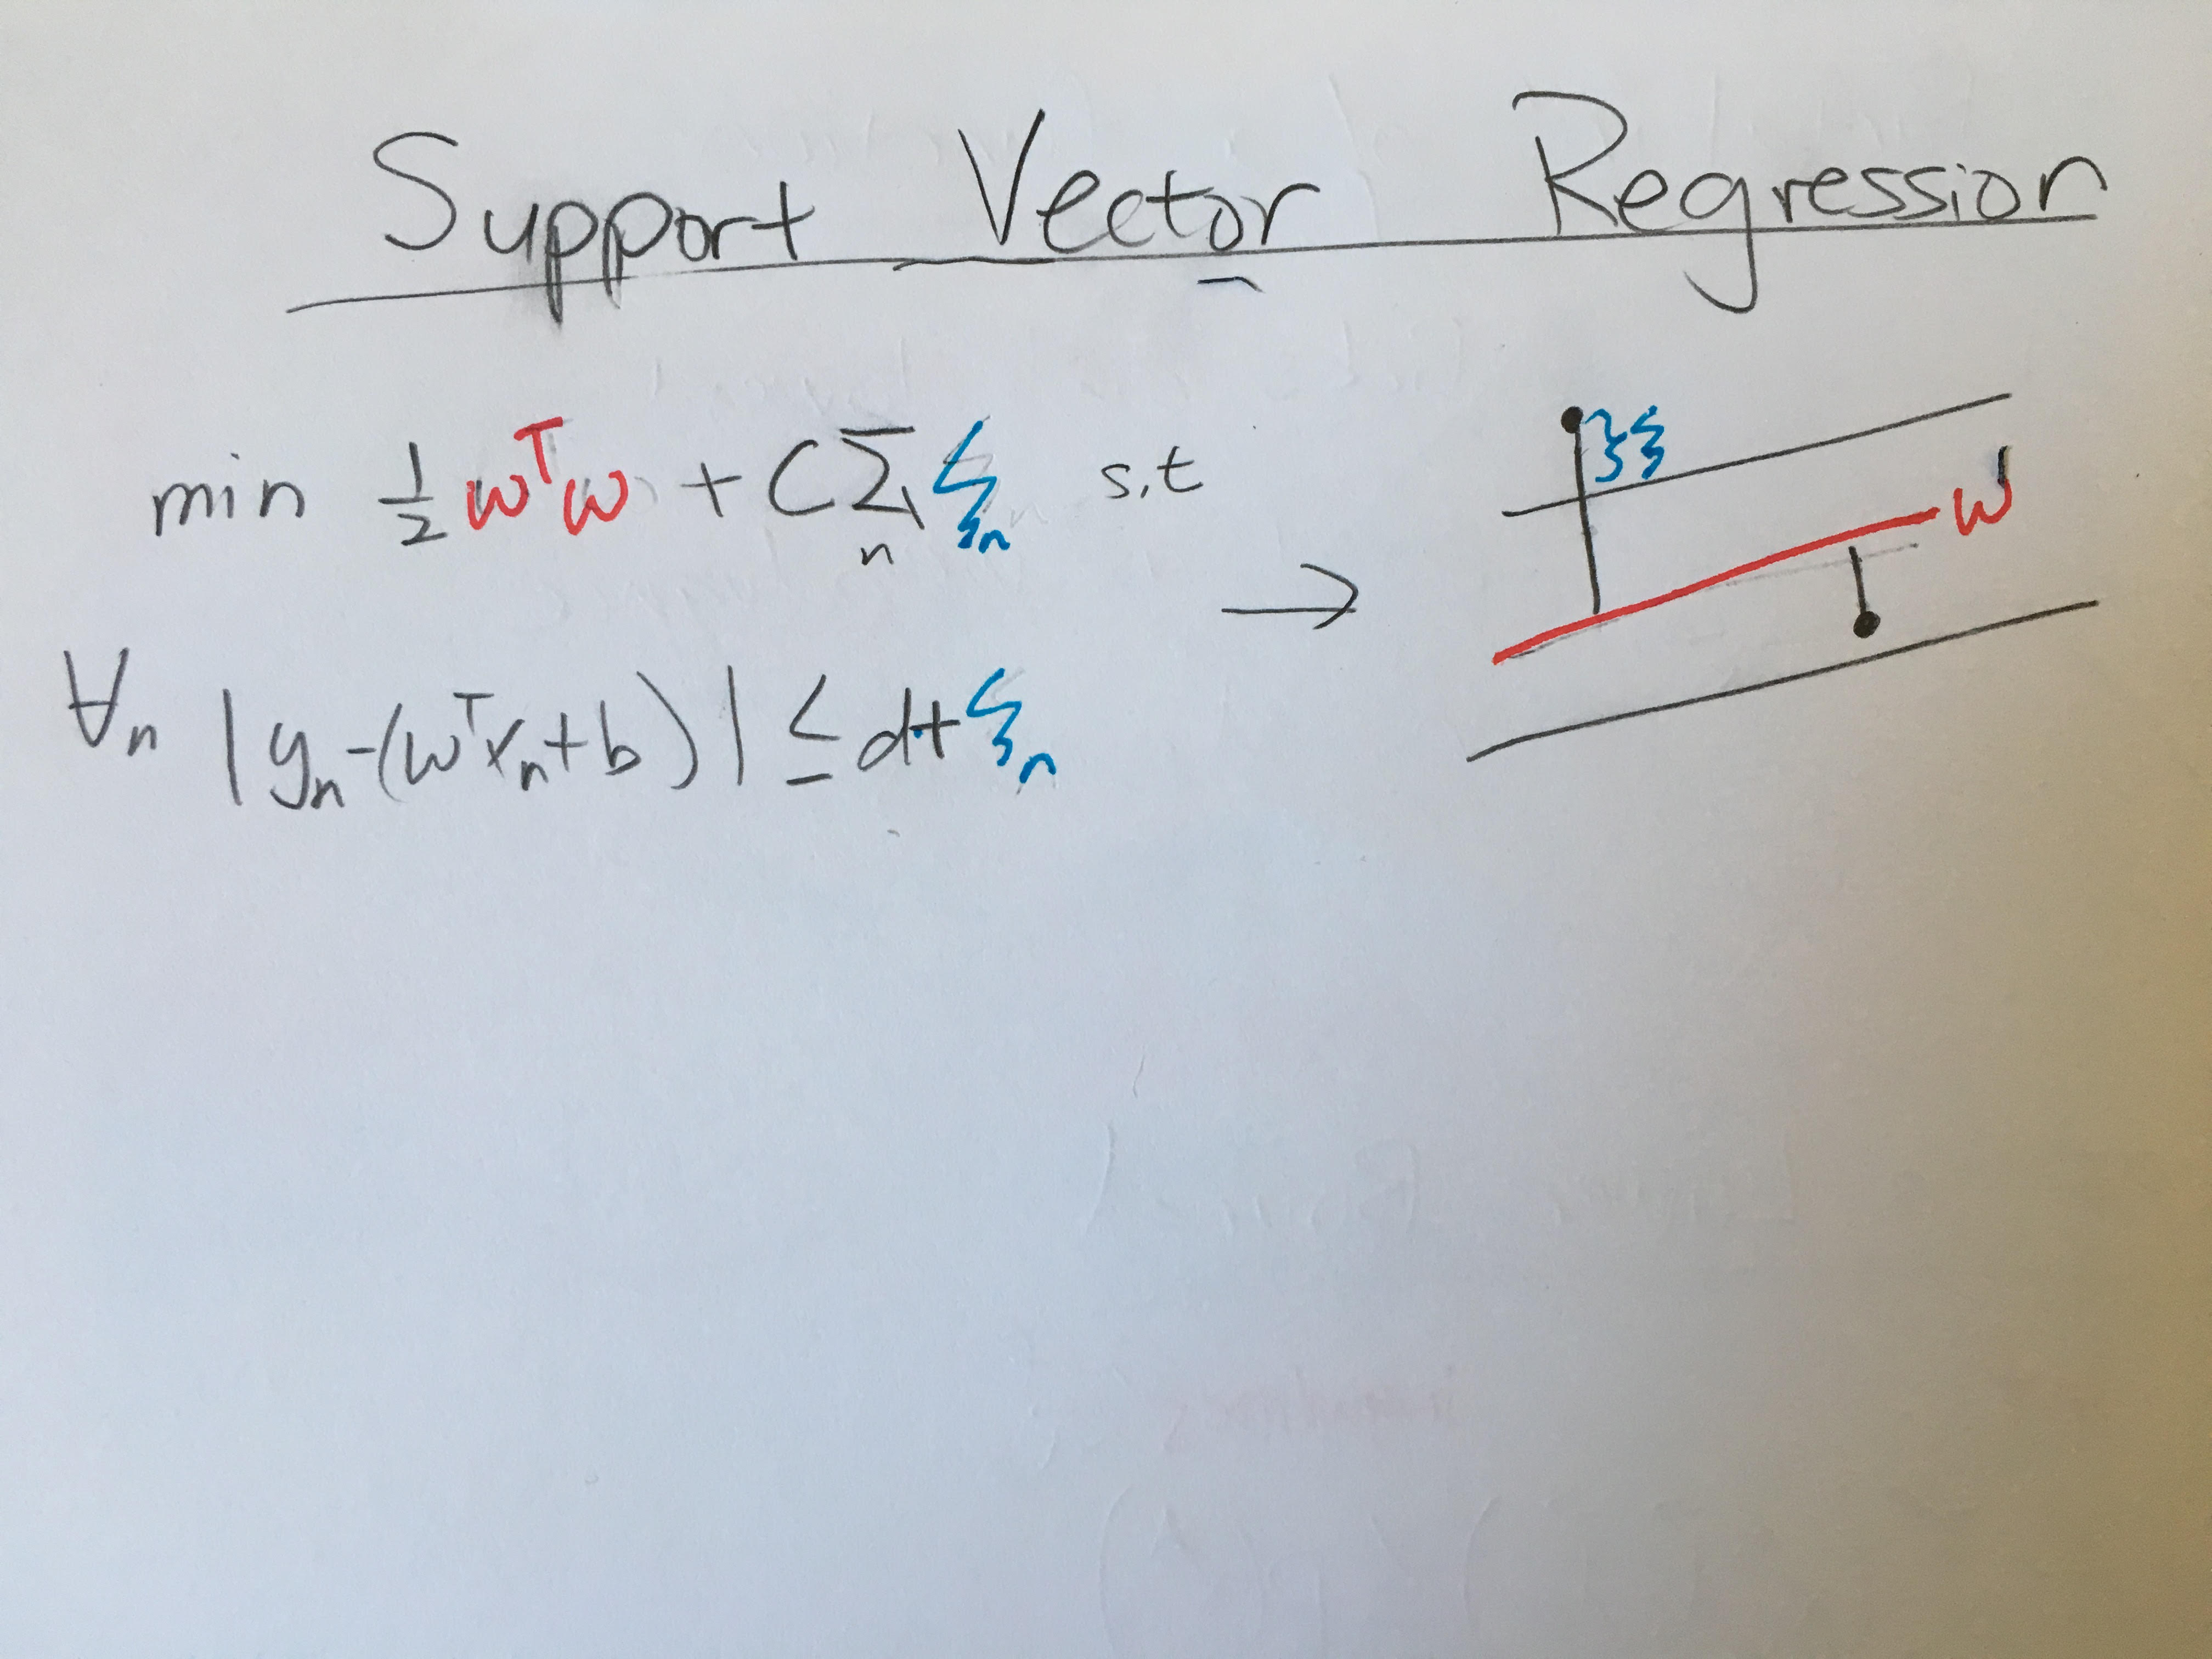 Support Vector Regression
min ½ wᵀw + C Σₙ ξₙ s.t
∀ₙ |yₙ-(wᵀxₙ+b)| ≤ d+ξₙ
→
ξ
w